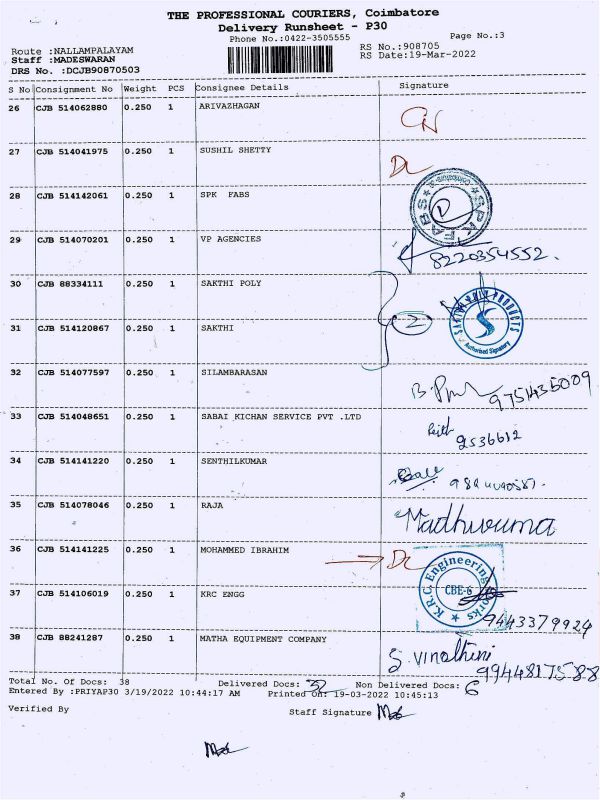 THE PROFESSIONAL COURIERS, Coimbatore
Delivery Runsheet - P30
Phone No.:0422-3505555 Page No.:3
Route :NALLAMPALAYAM RS No.:908705
Staff :MADESWARAN RS Date:19-Mar-2022
DRS No. :DCJB90870503
S No Consignment No Weight PCS Consignee Details Signature
26 CJB 514062880 0.250 1 ARIVAZHAGAN
27 CJB 514041975 0.250 1 SUSHIL SHETTY DL
28 CJB 514142061 0.250 1 SPK FABS SPK FABS
29 CJB 514070201 0.250 1 VP AGENCIES 8220354552.
30 CJB 88334111 0.250 1 SAKTHI POLY
SAKTHI POLY PRODUCTS
2
31 CJB 514120867 0.250 1 SAKTHI
Authorised Signatory
32 CJB 514077597 0.250 1 SILAMBARASAN 9751435009
33 CJB 514048651 0.250 1 SABAI KICHAN SERVICE PVT .LTD 9536612
34 CJB 514141220 0.250 1 SENTHILKUMAR
35 CJB 514078046 0.250 1 RAJA
36 CJB 514141225 0.250 1 MOHAMMED IBRAHIM DL
K.R.C. Engineering Works
CBE-6
37 CJB 514106019 0.250 1 KRC ENGG 9443379924
38 CJB 88241287 0.250 1 MATHA EQUIPMENT COMPANY S. Vinothini
9944817588
Total No. Of Docs: 38 Delivered Docs: 32 Non Delivered Docs: 6
Entered By :PRIYAP30 3/19/2022 10:44:17 AM Printed On: 19-03-2022 10:45:13
Verified By Staff Signature